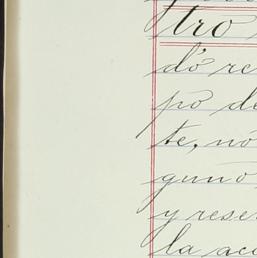 tro
dó re
po de
te, nó
guno
y rese
la aco